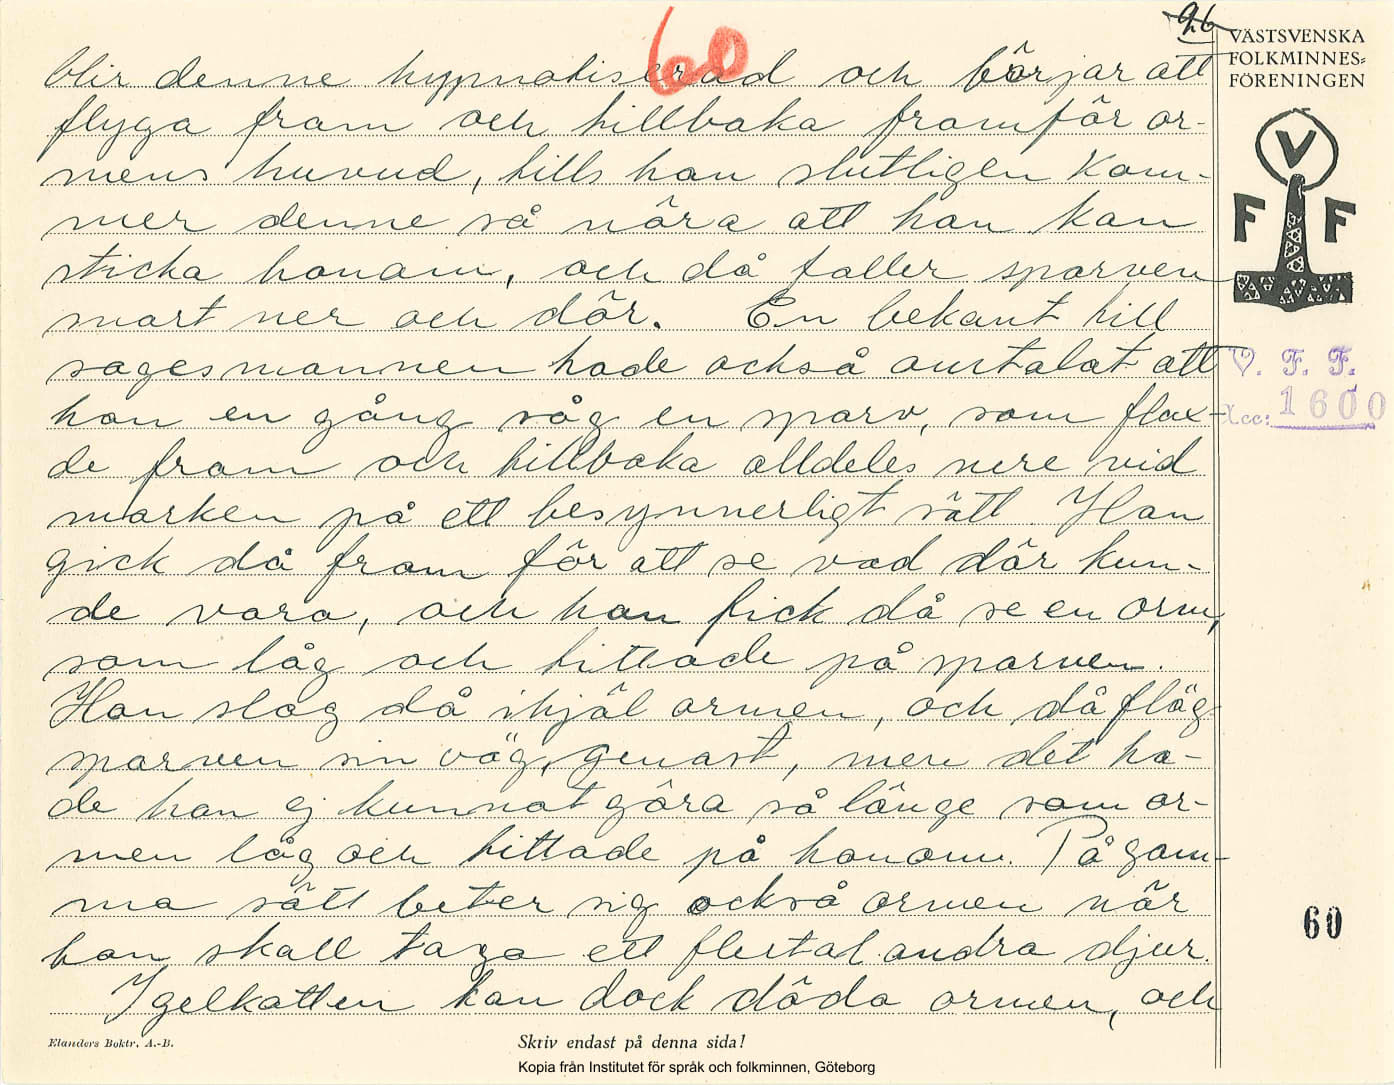 60
26
VÄSTSVENSKA
FOLKMINNES=
FÖRENINGEN
V
F F
V. F. F.
Acc: 1600
blir denne hypnotiserad och börjar att
flyga fram och tillbaka framför or-
mens huvud, tills han slutligen kom-
mer denne så nära att han kan
sticka honom, och då faller sparven
snart ner och dör. En bekant till
sagesmannen hade också omtalat att
han en gång såg en sparv, som flax-
de fram och tillbaka alldeles nere vid
marken på ett besynnerligt sätt. Han
gick då fram för att se vad där kun-
de vara, och han fick då se en orm,
som låg och tittade på sparven.
Han slog då ihjäl ormen, och då flög
sparven sin väg, genast, men det ha-
de han ej kunnat göra så länge som or-
men låg och tittade på honom. På sam-
ma sätt beter sig också ormen när
han skall taga ett flertal andra djur.
Igelkatten kan dock döda ormen, och
60
Elanders Boktr. A.-B.
Skriv endast på denna sida!
Kopia från Institutet för språk och folkminnen, Göteborg